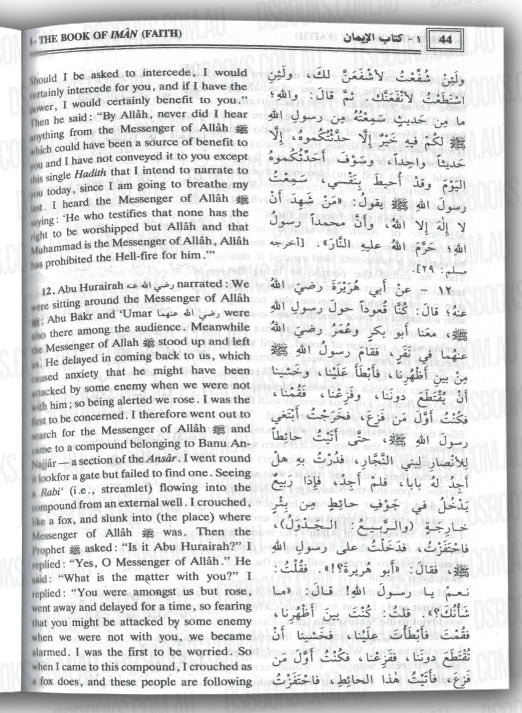 THE BOOK OF IMÀN (FAITH)
١ - كتاب الإيمان
44
Should I be asked to intercede, I would
certainly intercede for you, and if I have the
power, I would certainly benefit to you.”
Then he said: “By Allâh, never did I hear
anything from the Messenger of Allâh ﷺ
which could have been a source of benefit to
you and I have not conveyed it to you except
this single Hadith that I intend to narrate to
you today, since I am going to breathe my
last. I heard the Messenger of Allâh ﷺ
saying: ‘He who testifies that none has the
right to be worshipped but Allâh and that
Muhammad is the Messenger of Allâh, Allâh
has prohibited the Hell-fire for him.’”
12. Abu Hurairah رضي الله عنه narrated: We
were sitting around the Messenger of Allâh
ﷺ; Abu Bakr and ‘Umar رضي الله عنهما were
also there among the audience. Meanwhile
the Messenger of Allah ﷺ stood up and left
us. He delayed in coming back to us, which
caused anxiety that he might have been
attacked by some enemy when we were not
with him; so being alerted we rose. I was the
first to be concerned. I therefore went out to
search for the Messenger of Allâh ﷺ and
came to a compound belonging to Banu An-
Najjâr — a section of the Ansâr. I went round
it lookfor a gate but failed to find one. Seeing
a Rabi‘ (i.e., streamlet) flowing into the
compound from an external well. I crouched,
like a fox, and slunk into (the place) where
Messenger of Allâh ﷺ was. Then the
Prophet ﷺ asked: “Is it Abu Hurairah?” I
replied: “Yes, O Messenger of Allâh.” He
said: “What is the matter with you?” I
replied: “You were amongst us but rose,
went away and delayed for a time, so fearing
that you might be attacked by some enemy
when we were not with you, we became
alarmed. I was the first to be worried. So
when I came to this compound, I crouched as
a fox does, and these people are following
ولَئِنْ شُفِّعْتُ لأَشْفَعَنَّ لكَ، ولَئِنِ
اسْتَطَعْتُ لأَنْفَعَنَّكَ. ثمَّ قالَ: واللهِ؛
ما مِن حَديثٍ سَمِعْتُهُ مِن رسولِ اللهِ
ﷺ لكُم فيهِ خَيْرٌ إلَّا حدَّثْتُكُموهُ، إلَّا
حَديثاً واحِداً، وسَوْفَ أُحَدِّثُكُموهُ
اليَوْمَ وقدْ أُحيطَ بِنَفْسي، سَمِعْتُ
رسولَ اللهِ ﷺ يقولُ: «مَنْ شَهِدَ أَنْ
لا إلهَ إلا اللهُ، وأَنَّ محمداً رسولُ
اللهِ؛ حَرَّمَ اللهُ عليهِ النَّارَ». [أخرجه
مسلم: ٢٩].
١٢ - عنْ أَبي هُرَيْرَةَ رضيَ اللهُ
عنهُ؛ قالَ: كُنَّا قُعوداً حولَ رسولِ اللهِ
ﷺ، معَنا أَبو بكرٍ وعُمَرُ رضيَ اللهُ
عنهُما في نَفَرٍ، فقامَ رسولُ اللهِ ﷺ
مِنْ بَينِ أَظْهُرِنا، فأَبْطَأَ عَلَيْنا، وخَشينا
أَنْ يُقْتَطَعَ دونَنا، وفَزِعْنا، فقُمْنا،
فكُنْتُ أَوَّلَ مَن فَزِعَ، فخَرَجْتُ أَبْتَغي
رسولَ اللهِ ﷺ، حتَّى أَتَيْتُ حائِطاً
لِلأنْصارِ لِبَني النَّجَّارِ، فدُرْتُ بهِ هلْ
أَجِدُ لهُ باباً، فلمْ أَجِدْ، فإذا رَبيعٌ
يَدْخُلُ في جَوْفِ حائِطٍ مِن بِئْرٍ
خارِجَةٍ (والرَّبيعُ: الجَدْوَلُ)،
فاحْتَفَزْتُ، فدَخَلْتُ على رسولِ اللهِ
ﷺ، فقالَ: «أَبو هُريرةَ؟!». فقُلْتُ:
نعم يا رسولَ اللهِ! قالَ: «ما
شَأْنُكَ؟». قلتُ: كُنْتَ بينَ أَظْهُرِنا،
فقُمْتَ فأَبْطَأْتَ علَيْنا، فخَشينا أَنْ
تُقْتَطَعَ دونَنا، ففَزِعْنا، فكُنْتُ أَوَّلَ مَن
فَزِعَ، فأَتَيْتُ هٰذا الحائِطَ، فاحْتَفَزْتُ